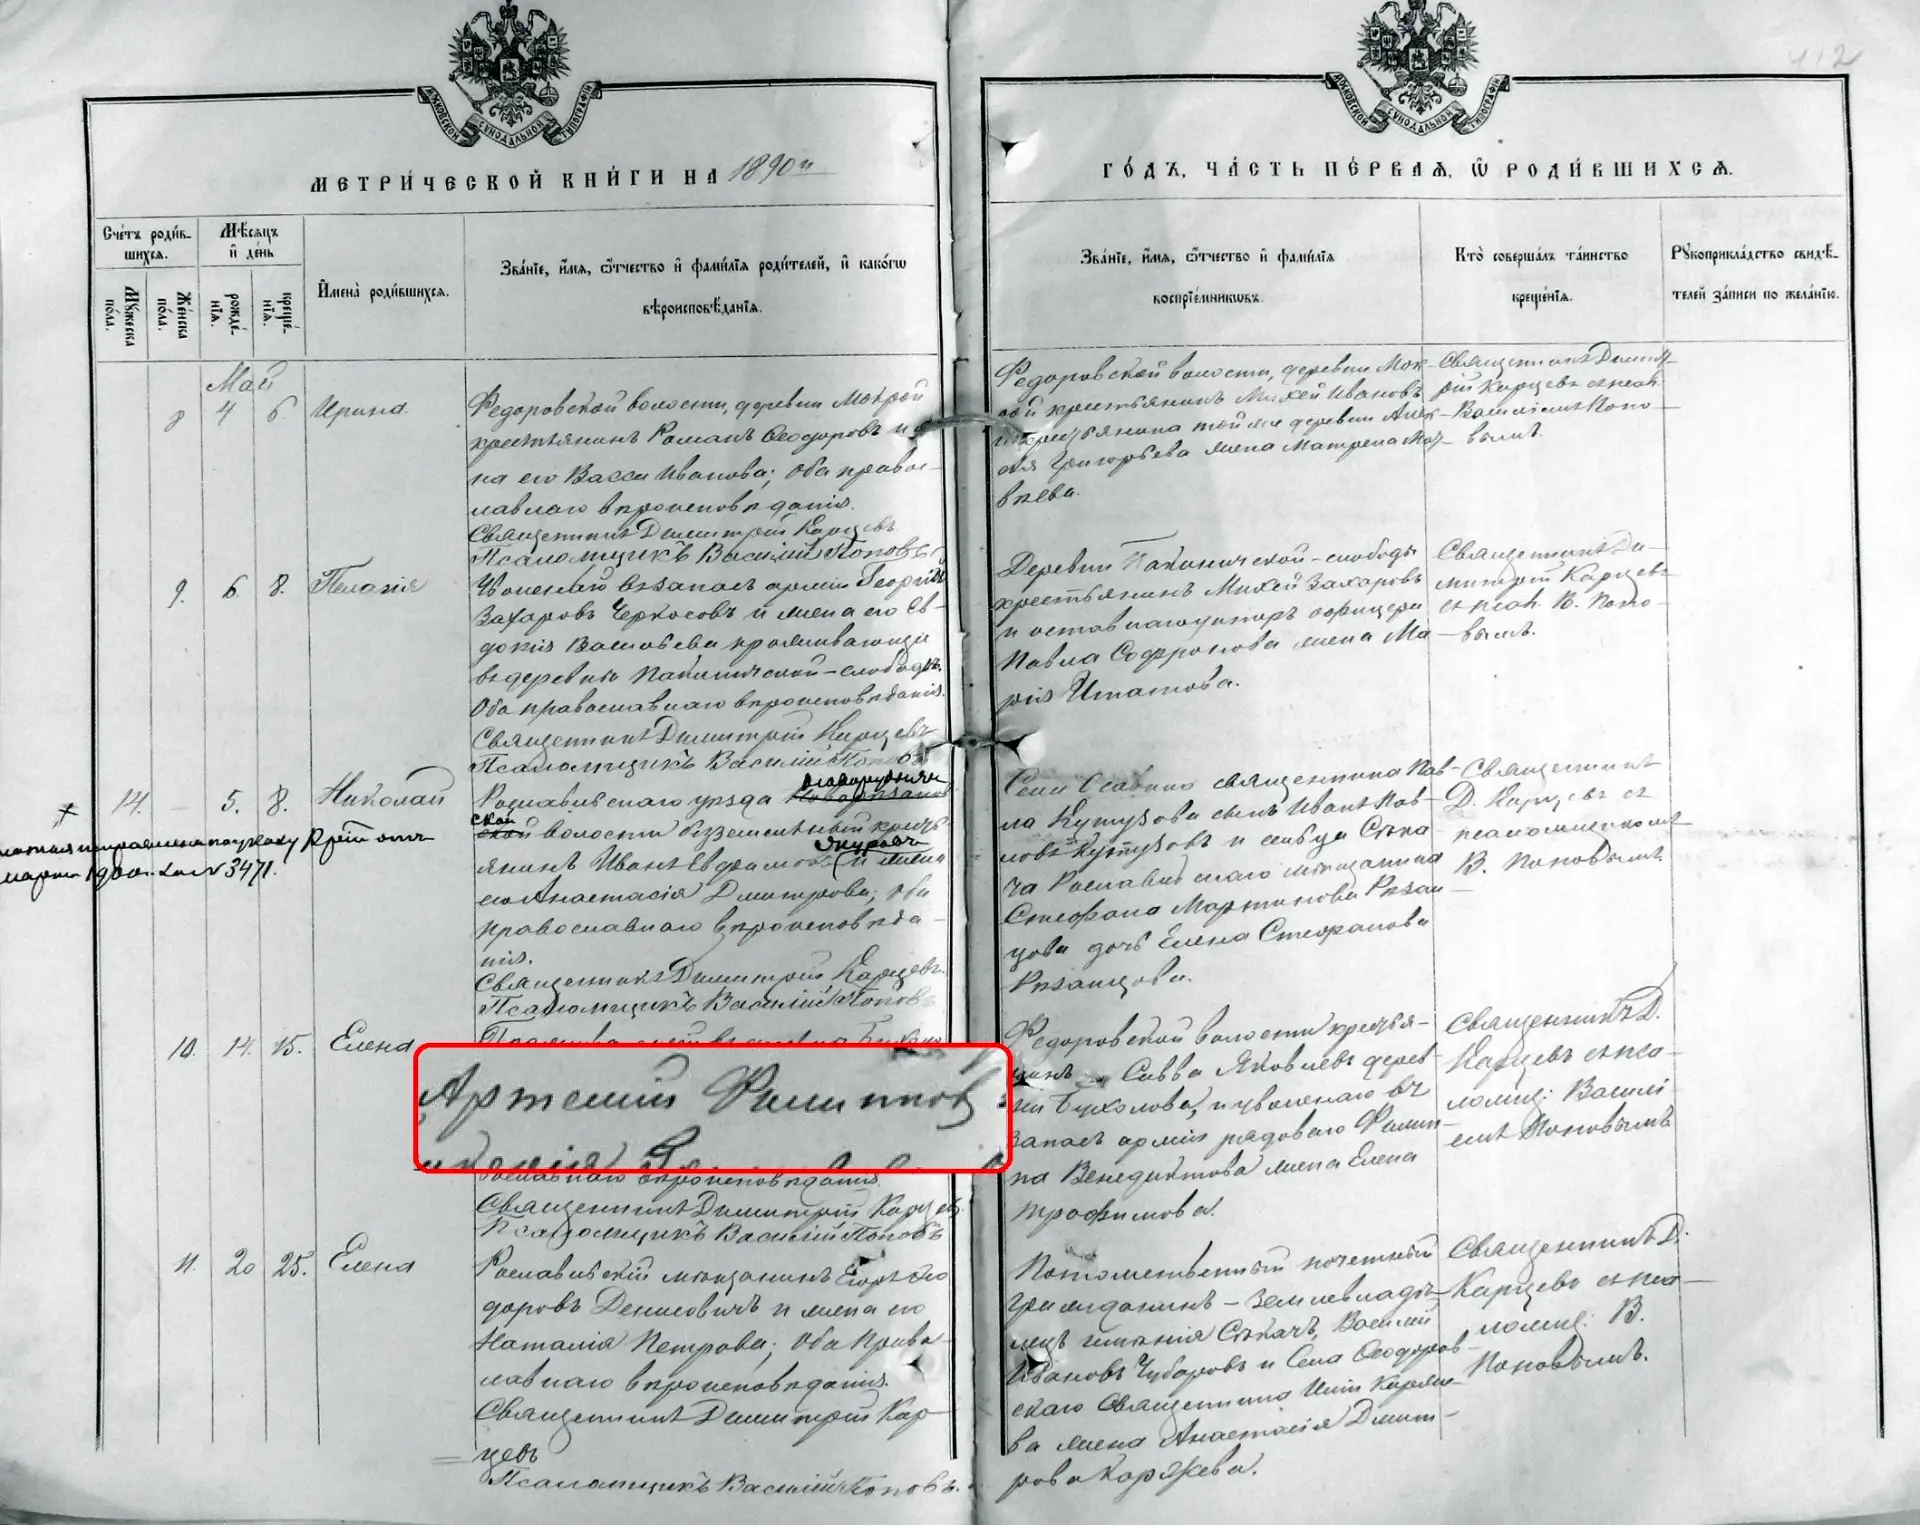 412
МОСКОВСКОЙ СУНОДАЛЬНОЙ ТИПОГРАФІИ
МОСКОВСКОЙ СУНОДАЛЬНОЙ ТИПОГРАФІИ
МЕТРИ́ЧЕСКОЙ КНИ́ГИ НА 1890й
ГО́ДЪ, ЧА́СТЬ ПЕ́РВАЯ, Ѡ РОДИ́ВШИХСЯ.
Сче́тъ роди́в-
шихся.
Мѣ́сяцъ
и҆ де́нь
Мꙋ́жеска
по́ла.
Же́нска
по́ла.
рожде́-
нїя.
креще́-
нїя.
И҆мена̀ роди́вшихся.
Зва́нїе, и҆́мя, ѻ҆́тчество и҆ фами́лїя роди́телей, и҆ како́гѡ
вѣроисповѣ́данїя.
Зва́нїе, и҆́мя, ѻ҆́тчество и҆ фами́лїя
воспрїе́мникѡвъ.
Кто̀ соверша́лъ та́инство
креще́нїя.
Рꙋкоприкла́дство свидѣ́-
телей за́писи по жела́нїю.
Май
8 4 6 Ирина.
Федоровской волости, деревни Мокрой
крестьянинъ Романъ Ѳеодоровъ и
на его Васса Иванова; оба право-
славнаго вѣроисповѣданія.
Священникъ Димитрій Карцевъ
Псаломщикъ Василій Поповъ
Федоровской волости, деревни Мок-
рой крестьянинъ Михей Ивановъ
и крестьянина той же деревни Алек-
Григорьева жена Матрена Мат-
вѣева.
Священникъ Димит-
рій Карцевъ съ псал.
Василіемъ Попо-
вымъ.
9. 6. 8. Пелагія
Уволенный въ запасъ арміи Георгій
Захаровъ Черкасовъ и жена его Ев-
докія Васильева проживающіе
въ деревнѣ слободѣ.
Оба православнаго вѣроисповѣданія.
Священникъ Димитрій Карцевъ
Псаломщикъ Василій Поповъ
Деревни слободы
крестьянинъ Михей Захаровъ
и унтеръ офицера
Павла Софронова жена Ма-
рія Игнатова.
Священникъ Ди-
митрій Карцевъ
съ псал. В. Попо-
вымъ.
14. 5. 8. Николай
Рославльскаго уѣзда
ской волости безземельный кресть-
янинъ Иванъ Евфимовъ и жена
его Анастасія Димитрова; оба
православнаго вѣроисповѣда-
нія.
Священникъ Димитрій Карцевъ.
Псаломщикъ Василій Поповъ
марта 1900 за № 3471.
Села священника Пав-
ла Кутузова сынъ Иванъ Пав-
ловъ Кутузовъ и сельца
Рославльскаго мѣщанина
Стефана Мартинова Рязан-
цова дочь Елена Стефанова
Рязанцова.
Священникъ
Д. Карцевъ съ
псаломщикомъ
В. Поповымъ.
10. 14. 15. Елена
Артемій Филиповъ
вѣроисповѣданія.
Священникъ Димитрій Карцевъ.
Псаломщикъ Василій Поповъ
Федоровской волости крестья-
нинъ Савва Яковлевъ дерев-
ни Бухолова, и уволенаго въ
запасъ арміи рядоваго Филип-
па Венедиктова жена Елена
Трофимова.
Священникъ Д.
Карцевъ съ пса-
ломщ: Васили-
емъ Поповымъ
11. 20 25. Елена
Рославльскій мѣщанинъ Егоръ Ѳео-
доровъ Денисовичъ и жена его
Наталія Петрова; оба право-
славнаго вѣроисповѣданія.
Священникъ Димитрій Кар-
цевъ
Псаломщикъ Василій Поповъ.
Потомственный почетный
гражданинъ – землевладѣ-
лецъ имѣнія Василій
Ивановъ Чубаровъ и села Ѳеодоров-
скаго священника
ва жена Анастасія Димит-
рова Каряжева.
Священникъ Д.
Карцевъ съ пса-
ломщ: В.
Поповымъ.